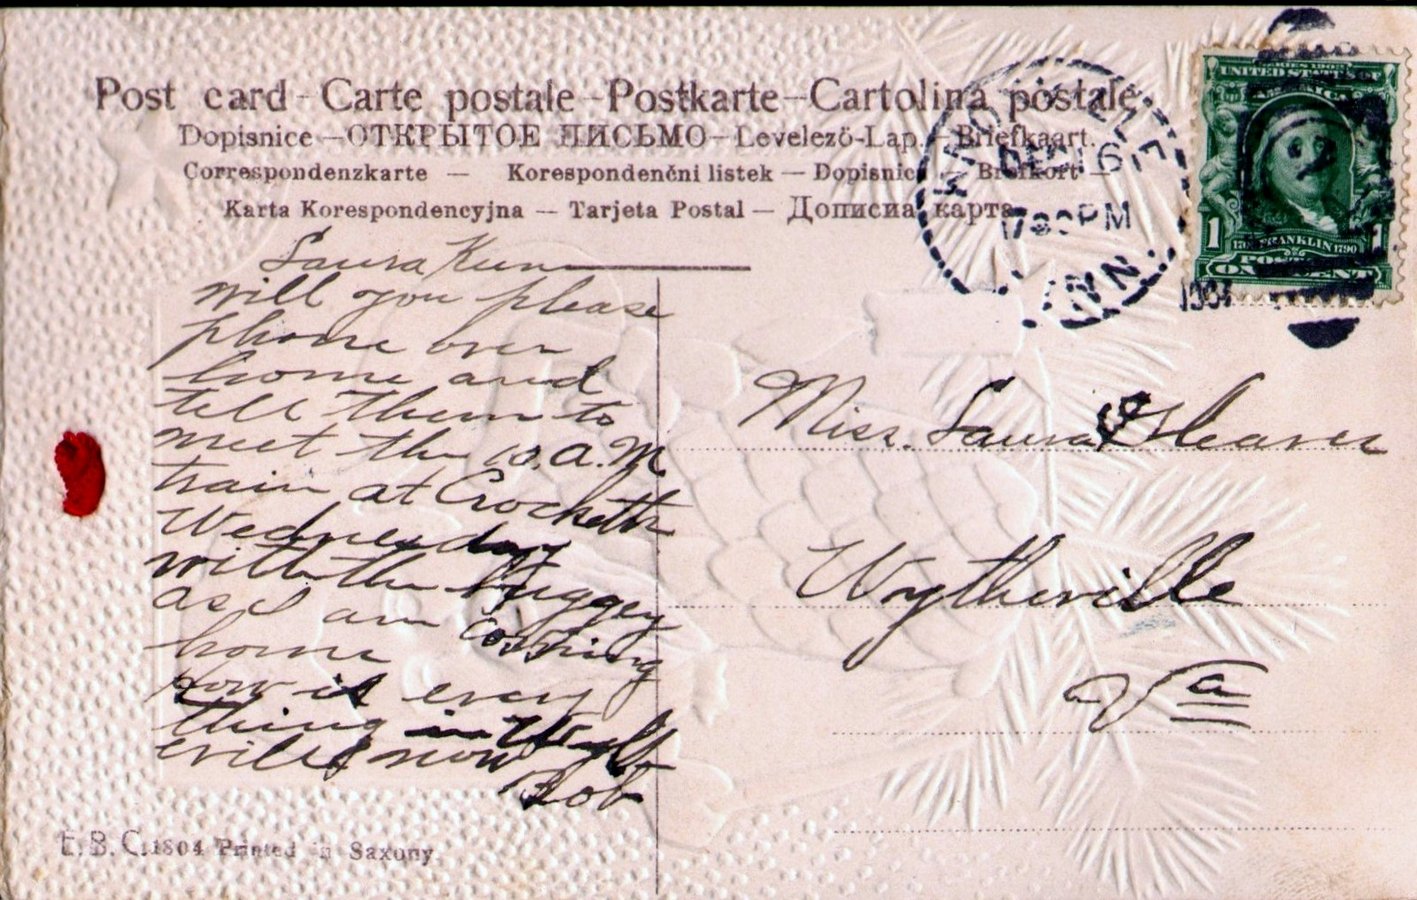 Post card – Carte postale – Postkarte – Cartolina postale
Dopisnice – ОТКРЫТОЕ ПИСЬМО – Levelező-Lap. – Briefkaart.
Correspondenzkarte — Korespondenčni listek — Dopisnica — Brefkort —
Karta Korespondencyjna — Tarjeta Postal — Дописна карта
KNOXVILLE
DEC 16
7 30 PM
TENN.
1907
SERIES 1902
UNITED STATES OF
AMERICA
1 1706 FRANKLIN 1790 1
POSTAGE
ONE CENT
Laura
will you please
phone over
home and
tell them to
meet the 10. A. M.
train at Crocketts
Wednesday
with the buggey
as I am coming
home
how is every
thing in Wyth
eville now
Bob
Miss. Laura
Wytheville
Va
E. B. C. 1804 Printed in Saxony